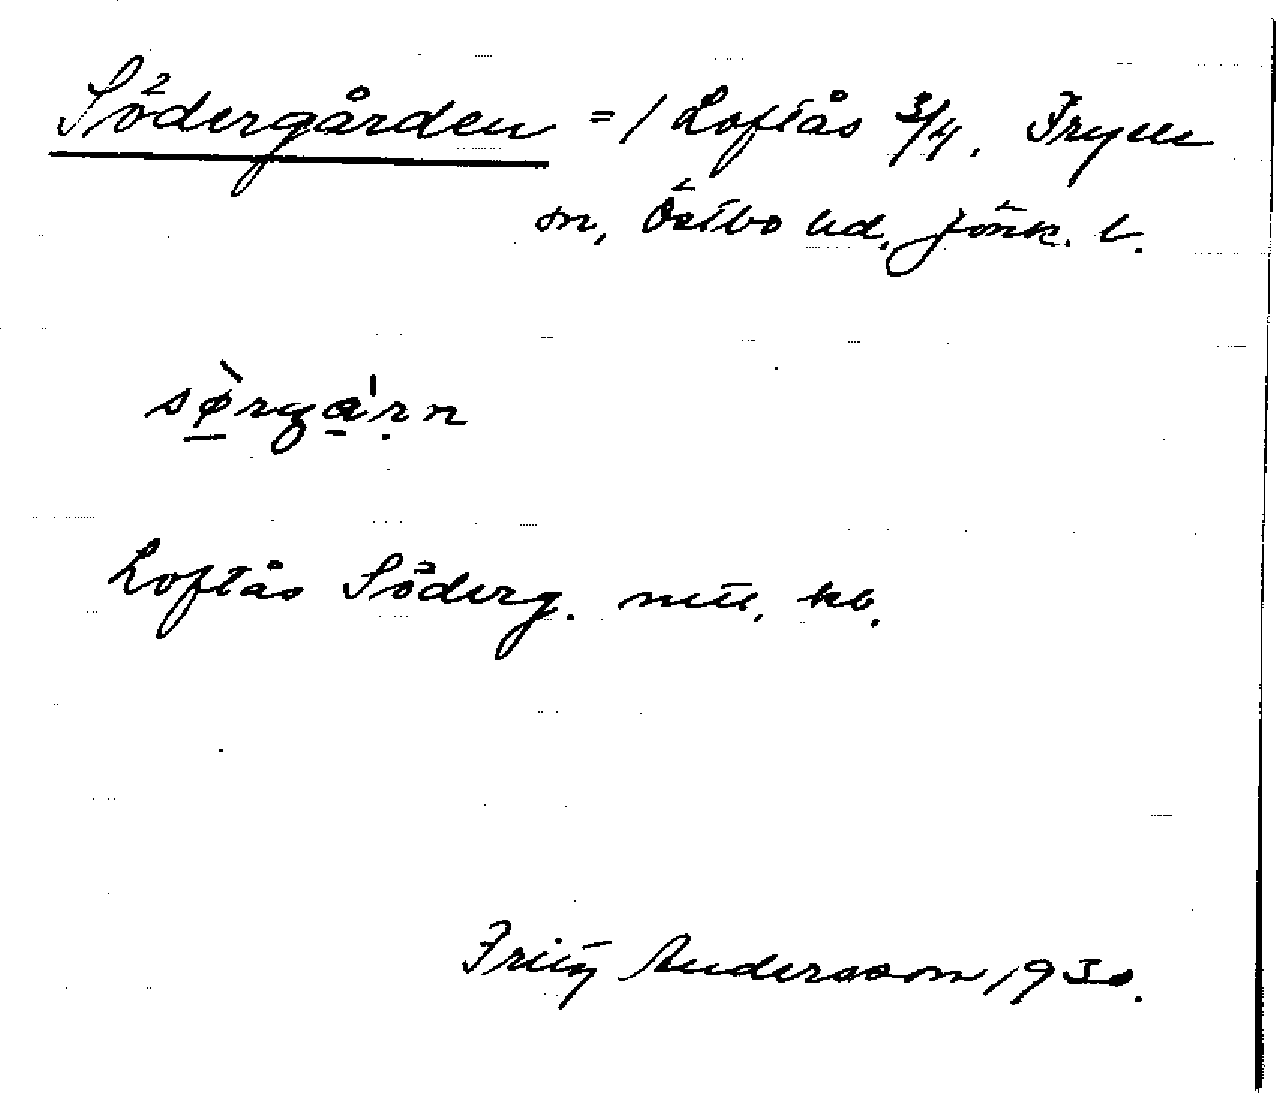 Södergården = 1 Loftås 3/4. Fryele
sn, Östbo hd, Jönk. l.
sø̀rga'rṇ
Loftås Söderg. mtl. kb.
Fritz Andersson 1930.